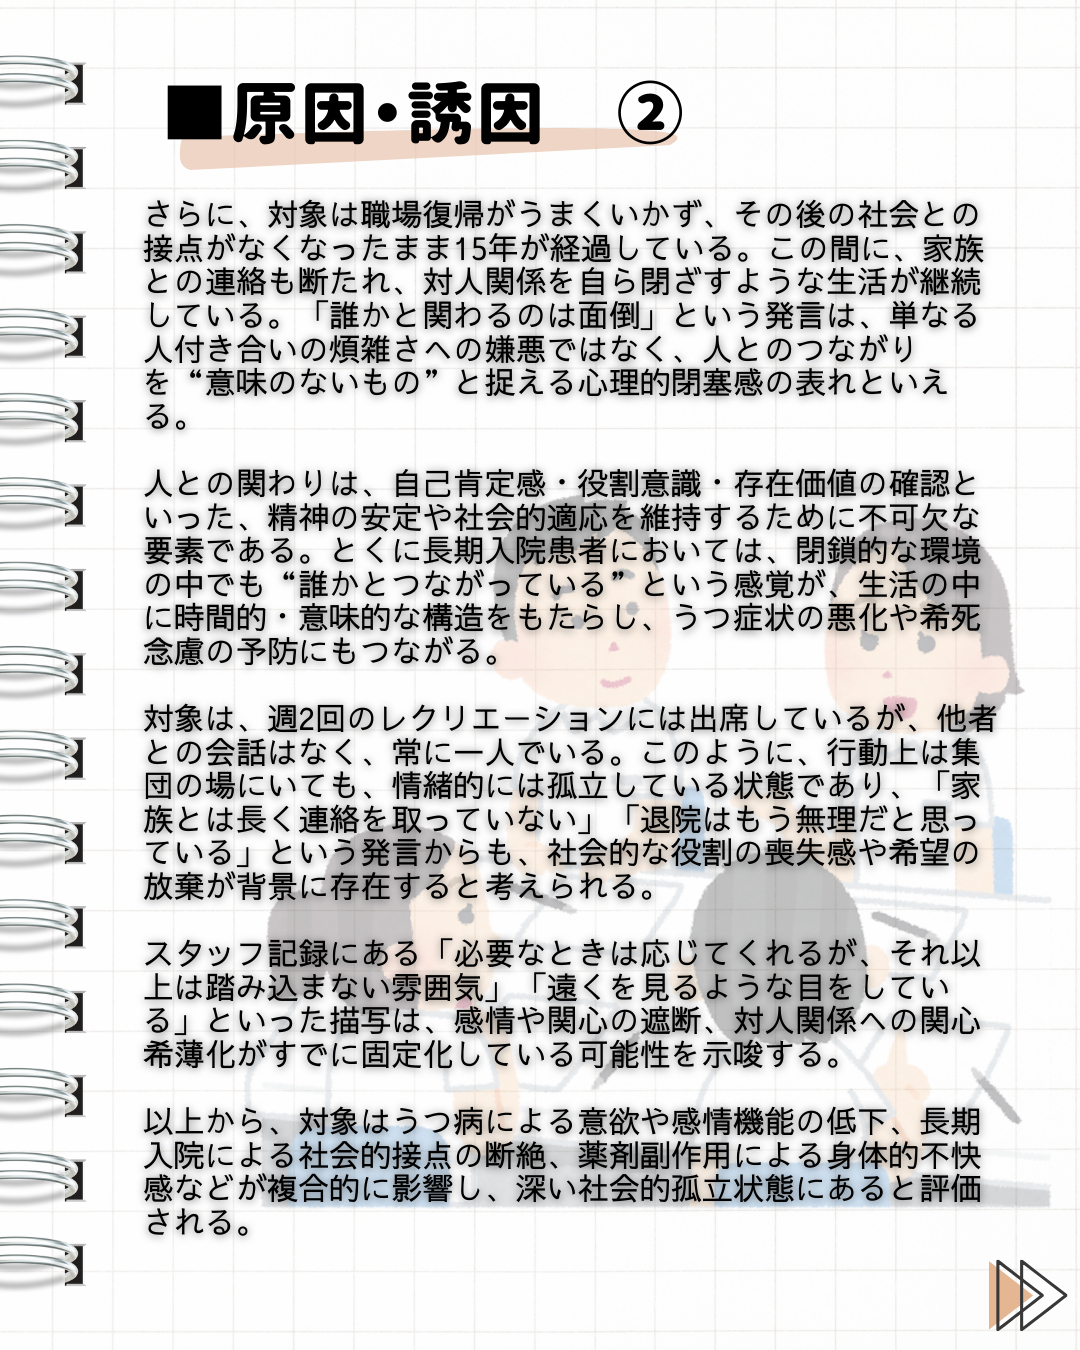 ■原因・誘因　②
さらに、対象は職場復帰がうまくいかず、その後の社会との
接点がなくなったまま15年が経過している。この間に、家族
との連絡も断たれ、対人関係を自ら閉ざすような生活が継続
している。「誰かと関わるのは面倒」という発言は、単なる
人付き合いの煩雑さへの嫌悪ではなく、人とのつながり
を“意味のないもの”と捉える心理的閉塞感の表れといえ
る。
人との関わりは、自己肯定感・役割意識・存在価値の確認と
いった、精神の安定や社会的適応を維持するために不可欠な
要素である。とくに長期入院患者においては、閉鎖的な環境
の中でも“誰かとつながっている”という感覚が、生活の中
に時間的・意味的な構造をもたらし、うつ症状の悪化や希死
念慮の予防にもつながる。
対象は、週2回のレクリエーションには出席しているが、他者
との会話はなく、常に一人でいる。このように、行動上は集
団の場にいても、情緒的には孤立している状態であり、「家
族とは長く連絡を取っていない」「退院はもう無理だと思っ
ている」という発言からも、社会的な役割の喪失感や希望の
放棄が背景に存在すると考えられる。
スタッフ記録にある「必要なときは応じてくれるが、それ以
上は踏み込まない雰囲気」「遠くを見るような目をしてい
る」といった描写は、感情や関心の遮断、対人関係への関心
希薄化がすでに固定化している可能性を示唆する。
以上から、対象はうつ病による意欲や感情機能の低下、長期
入院による社会的接点の断絶、薬剤副作用による身体的不快
感などが複合的に影響し、深い社会的孤立状態にあると評価
される。